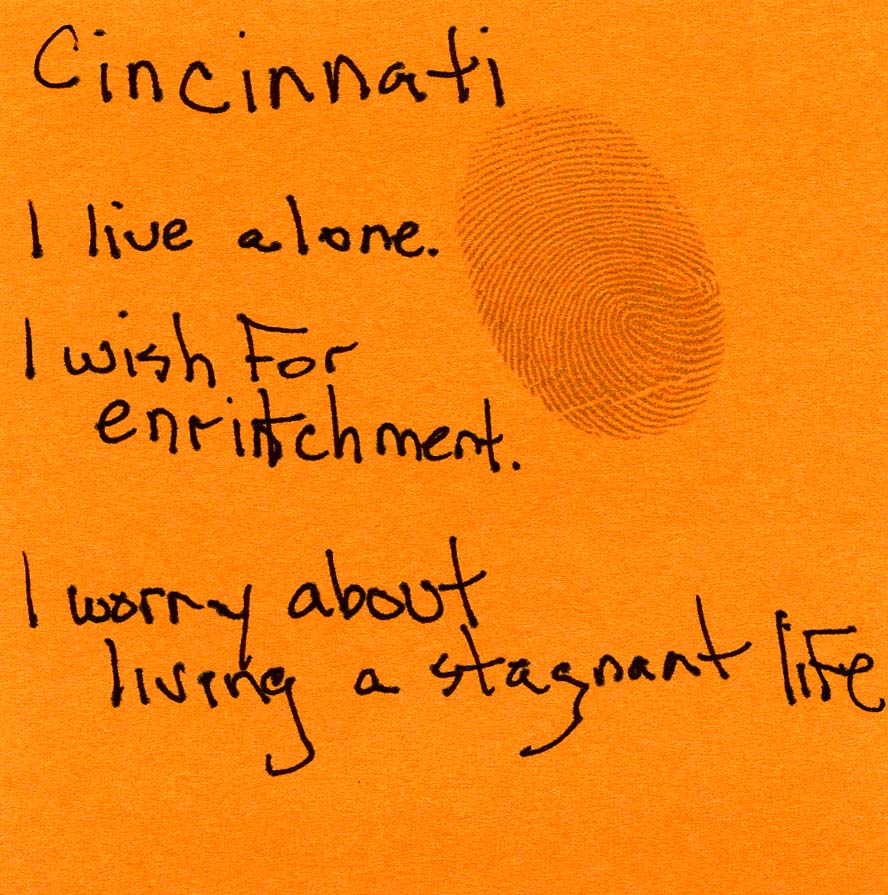 Cincinnati
I live alone.
I wish For
enritchment.
I worry about
living a stagnant life